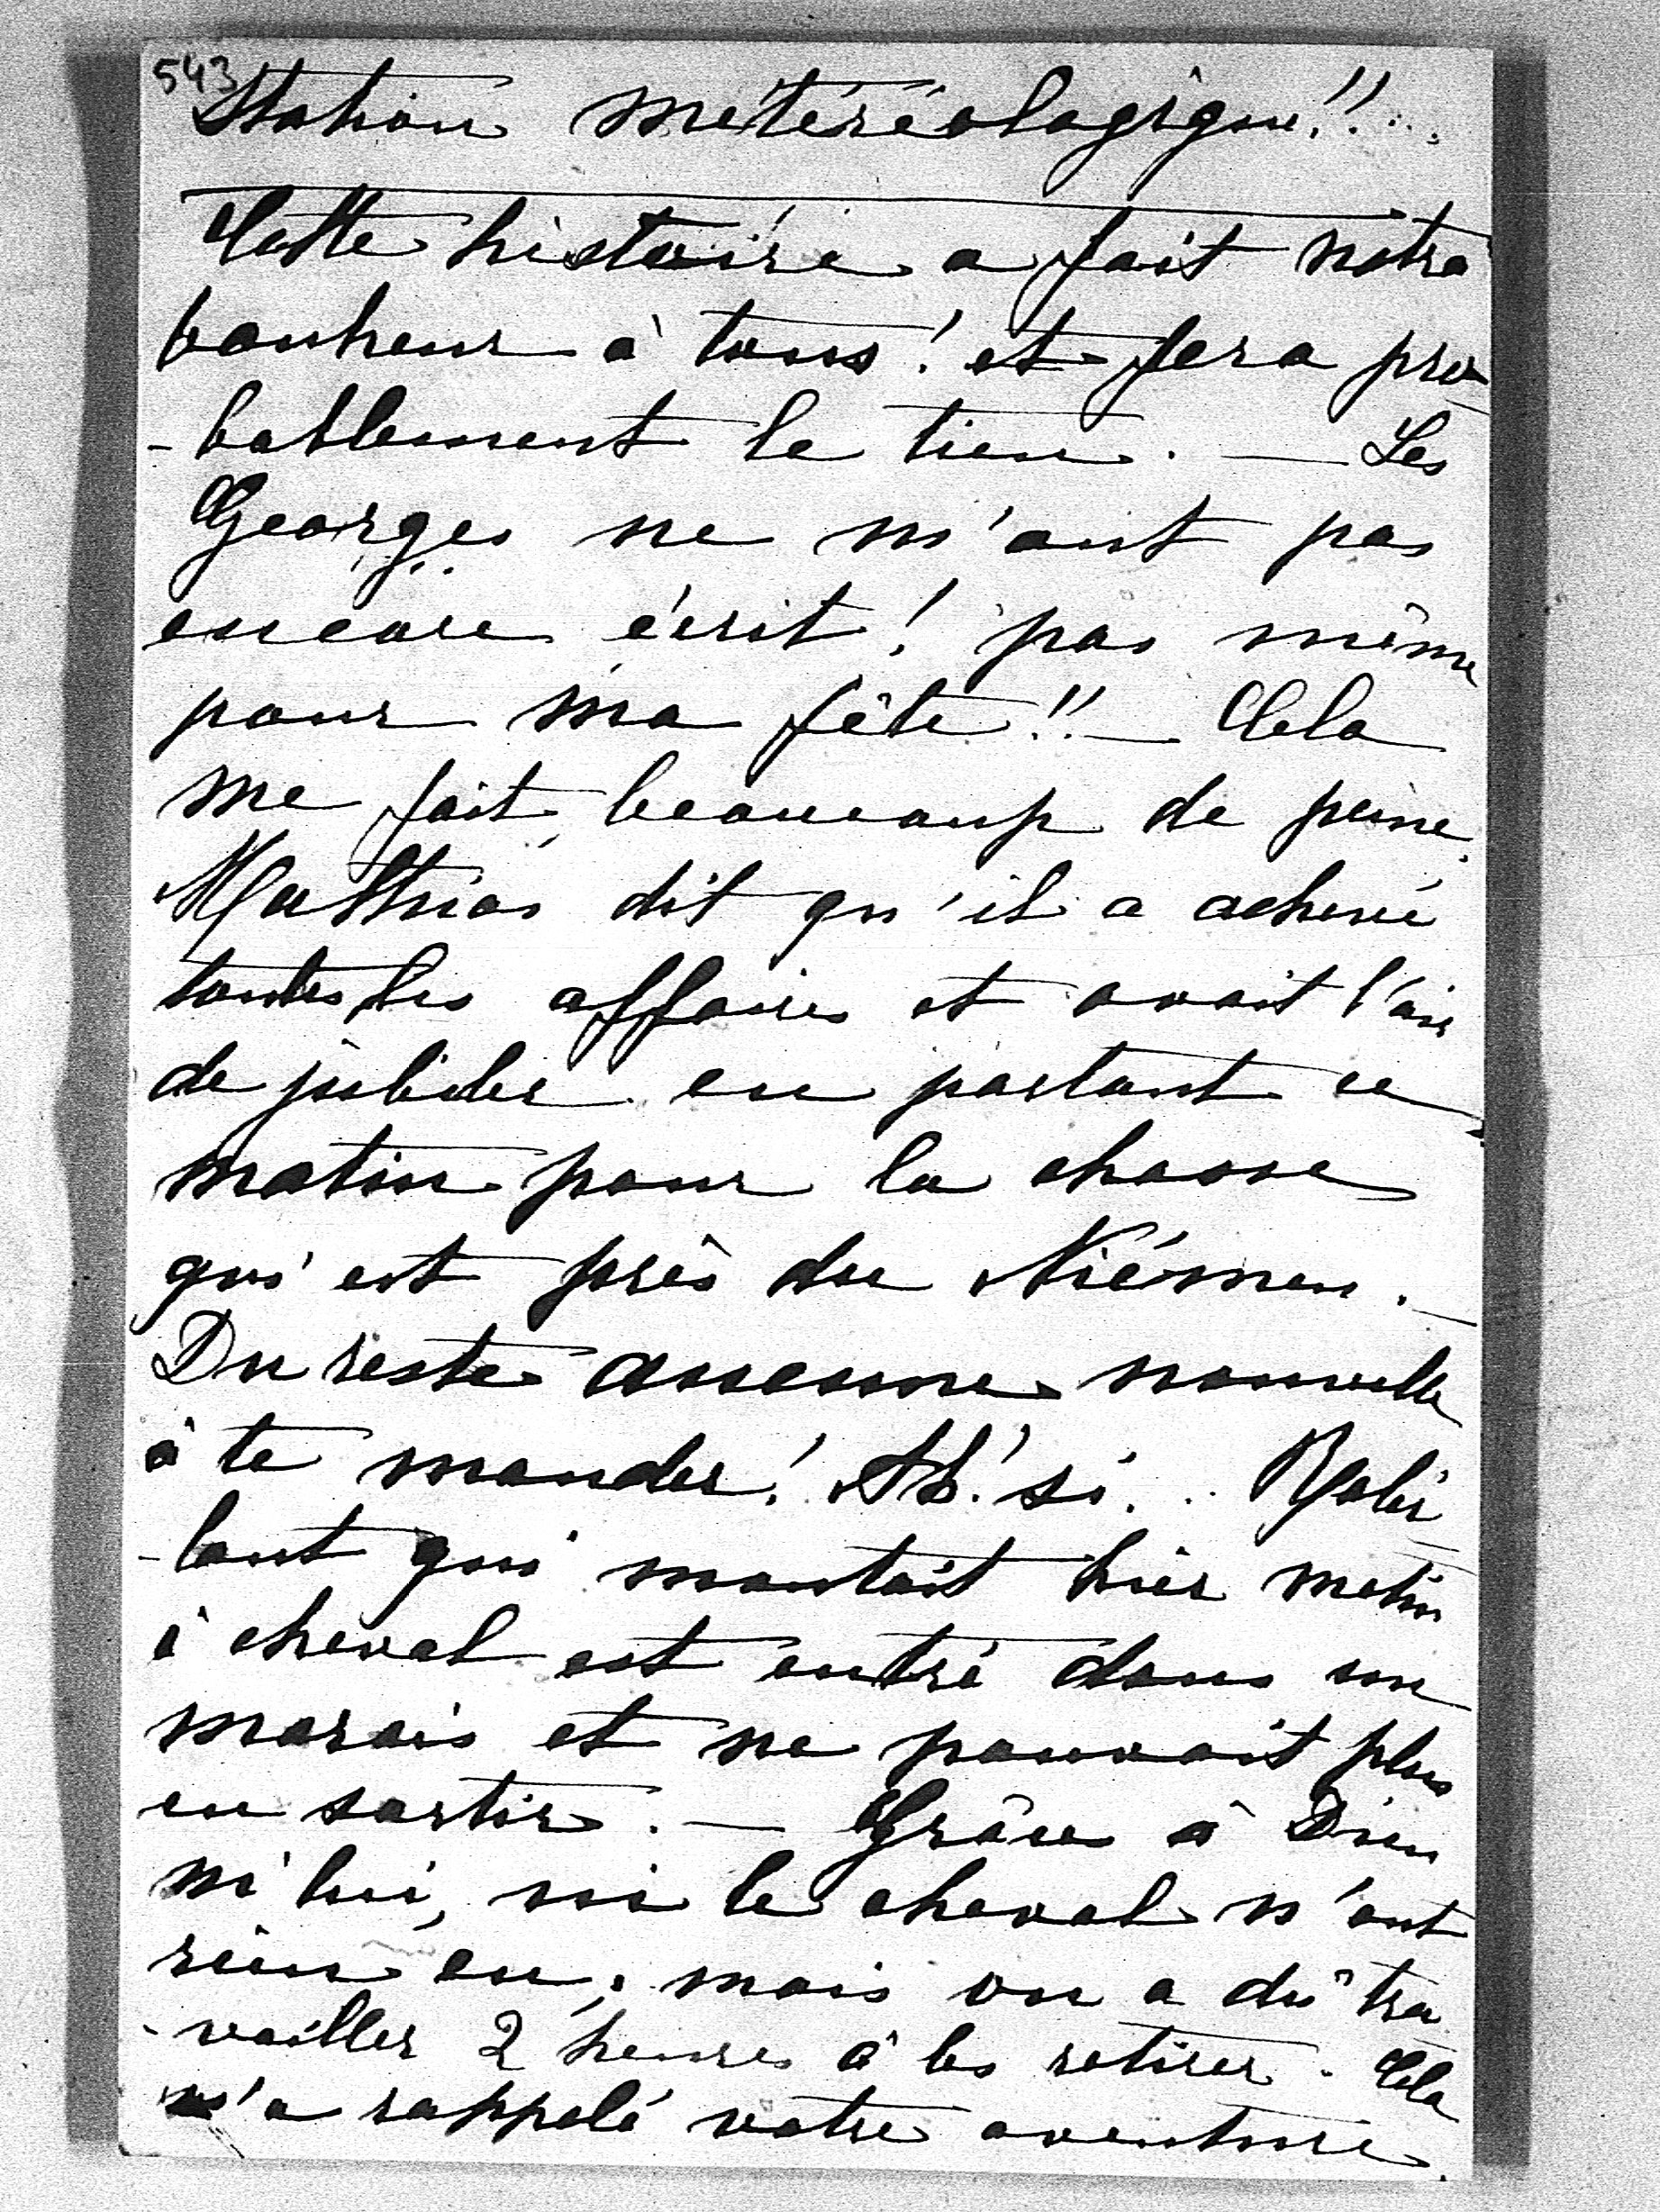 543
Station météréologique!!...
Cette histoire a fait notre
bonheur à tous! et fera pro
-bablement le tien. — Les
Georges ne m'ont pas
encore écrit! pas même
pour ma fête!! — Cela
me fait beaucoup de peine.
Mathias dit qu'il a achevé
toutes les affaires et avait l'air
de jubiler en partant ce
matin pour la chasse
qui est près du Niémen. —
Du reste aucune nouvelle
à te mander! Ah! si...
-lant qui montait hier matin
à cheval est entré dans un
marais et ne pouvait plus
en sortir. — Grâce à Dieu
ni lui, ni le cheval n'ont
rien eu, mais on a dû tra
-vailler 2 heures à les retirer. Cela
m'a rappelé votre aventure.